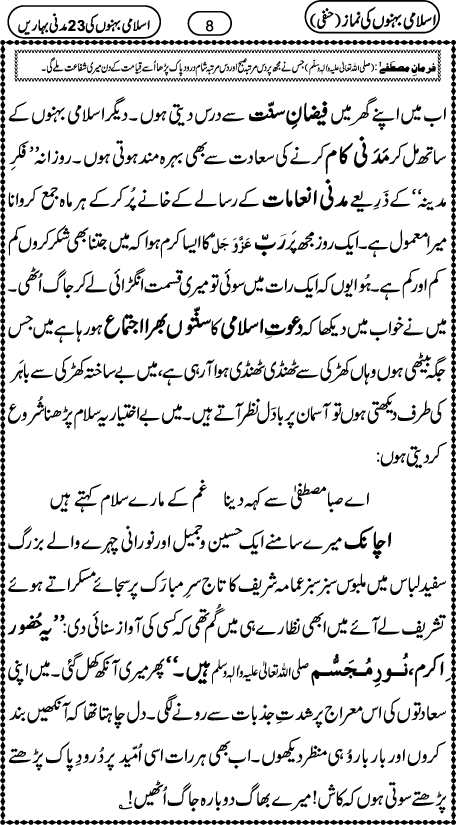 اسلامی بہنوں کی نماز (حنفی)
8
اسلامی بہنوں کی 23 مدنی بہاریں
فرمانِ مصطفٰے: (صلی اللہ تعالیٰ علیہ والہ وسلم) جس نے مجھ پر دس مرتبہ صبح اور دس مرتبہ شام درود پاک پڑھا اُسے قیامت کے دن میری شفاعت ملے گی۔
اب میں اپنے گھر میں فیضانِ سنّت سے درس دیتی ہوں۔ دیگر اسلامی بہنوں کے
ساتھ مل کر مَدَنی کام کرنے کی سعادت سے بھی بہرہ مند ہوتی ہوں۔ روزانہ ’’فکرِ
مدینہ‘‘ کے ذَرِیعے مدنی انعامات کے رسالے کے خانے پُر کر کے ہر ماہ جمع کروانا
میرا معمول ہے۔ ایک روز مجھ پر رَبّ عَزَّوَجَلَّ کا ایسا کرم ہوا کہ میں جتنا بھی شکر کروں کم
کم اور کم ہے۔ ہُوا یوں کہ ایک رات میں سوئی تو میری قسمت انگڑائی لے کر جاگ اُٹھی۔
میں نے خواب میں دیکھا کہ دعوتِ اسلامی کا سنّتوں بھرا اجتماع ہو رہا ہے میں جس
جگہ بیٹھی ہوں وہاں کھڑکی سے ٹھنڈی ٹھنڈی ہوا آ رہی ہے، میں بے ساختہ کھڑکی سے باہَر
کی طرف دیکھتی ہوں تو آسمان پر بادَل نظر آتے ہیں۔ میں بے اختیار یہ سلام پڑھنا شُروع
کر دیتی ہوں:
اے صبا مصطفیٰ سے کہہ دینا غم کے مارے سلام کہتے ہیں
اچانک میرے سامنے ایک حسین و جمیل اور نورانی چہرے والے بزرگ
سفید لباس میں ملبوس سبز سبز عمامہ شریف کا تاج سرِ مبارَک پر سجائے مسکراتے ہوئے
تشریف لے آئے میں ابھی نظارے ہی میں گُم تھی کہ کسی کی آواز سنائی دی: ’’یہ حُضور
اکرم، نُورِ مُجَسَّم صلی اللہ تعالیٰ علیہ والہ وسلم ہیں۔‘‘ پھر میری آنکھ کھل گئی۔ میں اپنی
سعادتوں کی اس معراج پر شدتِ جذبات سے رونے لگی۔ دل چاہتا تھا کہ آنکھیں بند
کروں اور بار بار وُہی منظر دیکھوں۔ اب بھی ہر رات اسی اُمّید پر دُرودِ پاک پڑھتے
پڑھتے سوتی ہوں کہ کاش! میرے بھاگ دوبارہ جاگ اُٹھیں!